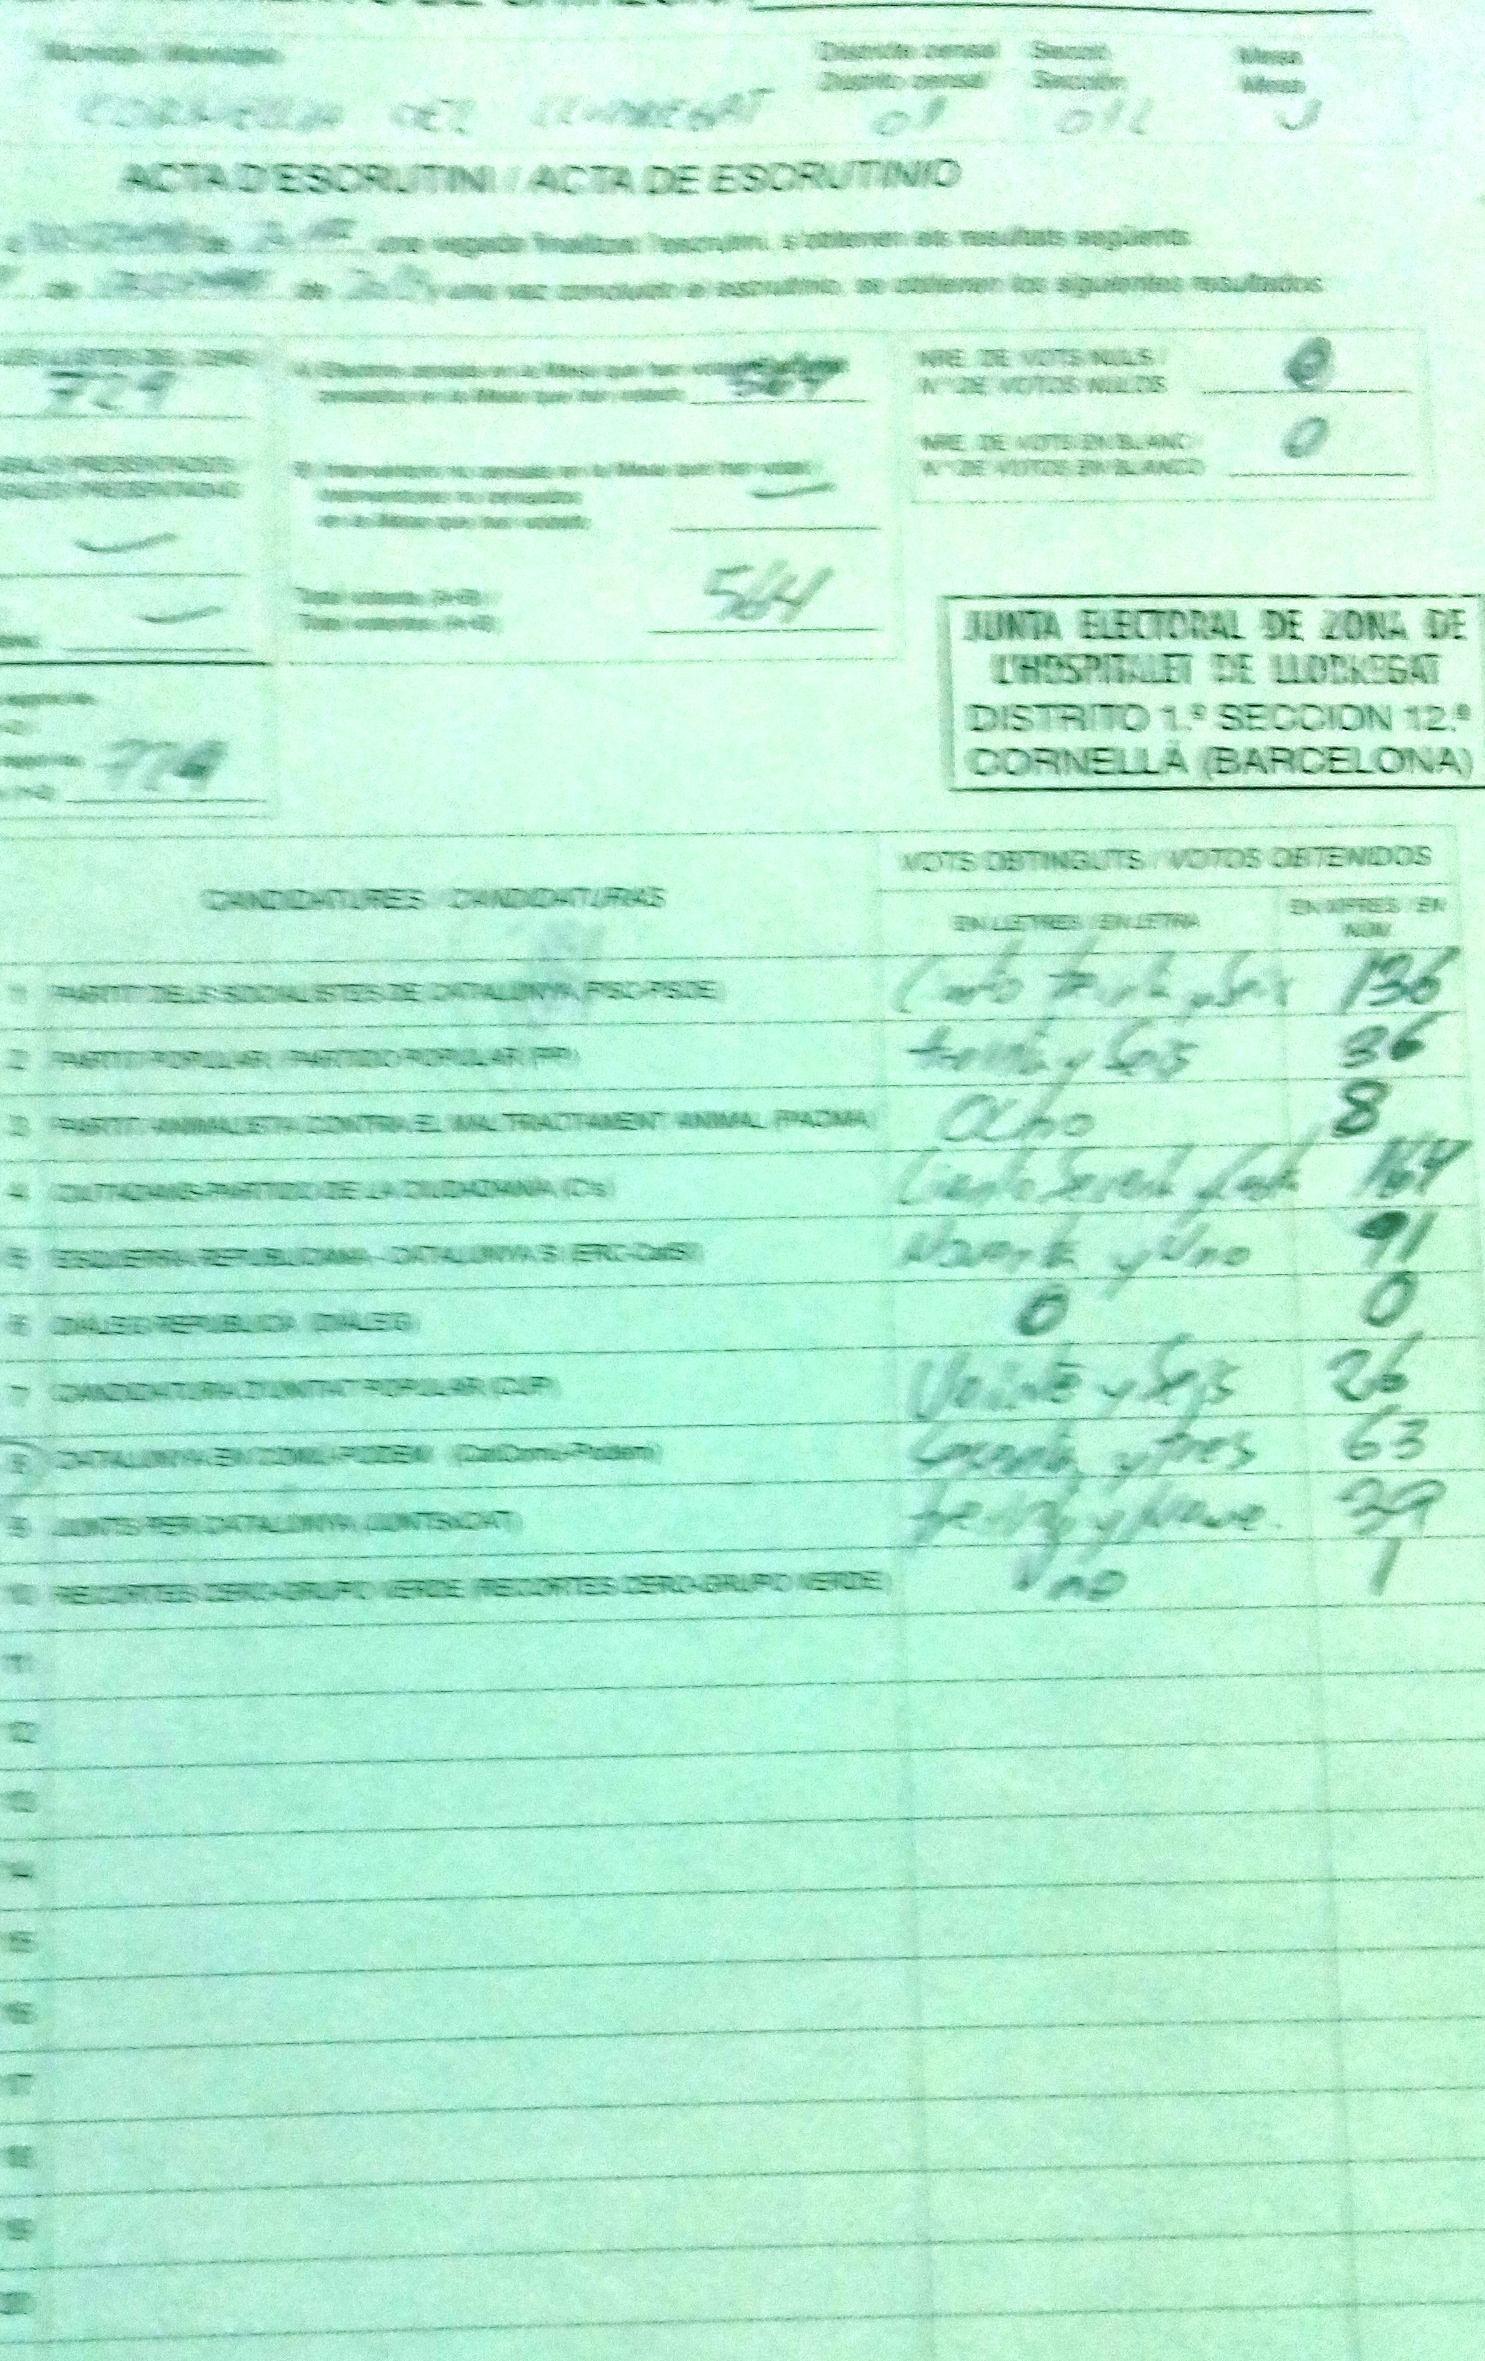 Municipi / Municipio
Districte censal Secció Mesa
Distrito censal Sección Mesa
CORNELLA DEL LLOBREGAT 01 012 U
ACTA D'ESCRUTINI / ACTA DE ESCRUTINIO
de una vegada finalitzat l'escrutini, s'obtenen els resultats següents:
de de una vez concluido el escrutinio, se obtienen los siguientes resultados:
729
A) Electors censats en la Mesa que han votat
censados en la Mesa que han votado 564
NRE. DE VOTS NULS /
N.º DE VOTOS NULOS 0
NRE. DE VOTS EN BLANC /
N.º DE VOTOS EN BLANCO 0
B) Interventors no censats en la Mesa que han votat /
Interventores no censados
en la Mesa que han votado
Total votants (A+B) /
Total votantes (A+B) 564
JUNTA ELECTORAL DE ZONA DE
L'HOSPITALET DE LLOBREGAT
DISTRITO 1.º SECCION 12.ª
CORNELLÀ (BARCELONA)
729
CANDIDATURES / CANDIDATURAS
VOTS OBTINGUTS / VOTOS OBTENIDOS
EN LLETRES / EN LETRA
EN XIFRES / EN NÚM.
1 PARTIT DELS SOCIALISTES DE CATALUNYA (PSC-PSOE) Ciento treinta y Seis 136
2 PARTIT POPULAR / PARTIDO POPULAR (PP) treinta y Seis 36
3 PARTIT ANIMALISTA CONTRA EL MALTRACTAMENT ANIMAL (PACMA) Ocho 8
4 CIUTADANS-PARTIDO DE LA CIUDADANÍA (C's) Ciento Sesenta y Cuatro 164
5 ESQUERRA REPUBLICANA - CATALUNYA SÍ (ERC-CatSí) Noventa y Uno 91
6 DIÀLEG REPÚBLICA (DIÀLEG) 0 0
7 CANDIDATURA D'UNITAT POPULAR (CUP) Veinte y Seis 26
8 CATALUNYA EN COMÚ-PODEM (CatComú-Podem) y tres 63
9 JUNTS PER CATALUNYA (JUNTSxCAT) treinta y Nueve. 39
10 RECORTES CERO-GRUPO VERDE (RECORTES CERO-GRUPO VERDE) Uno 1
11
12
13
14
15
16
17
18
19
20